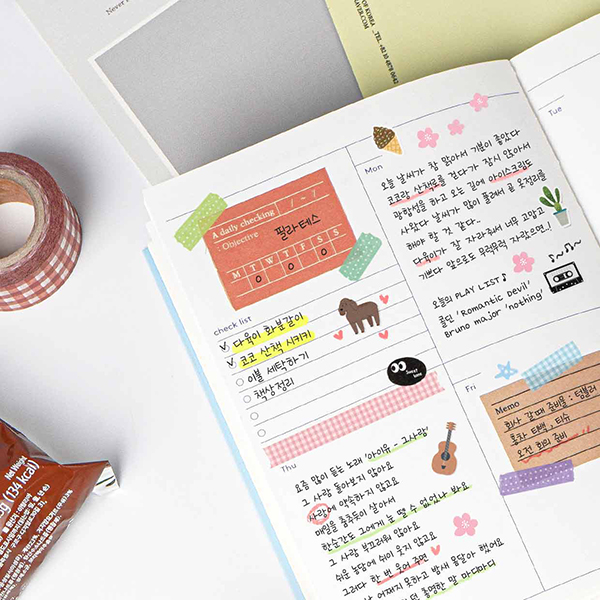 OF KOREA
Mon
Tue
오늘 날씨가 참 맑아서 기분이 좋았다
코코랑 산책로를 걷다가 잠시 앉아서
광합성을 하고 오는 길에 아이스크림도
사왔다 날씨가 많이 풀려서 곧 옷정리를
해야 할 것 같다..
다육이가 잘 자라줘서 너무 고맙고
기쁘다 앞으로도 무럭무럭 자랐으면..!
오늘의 PLAY LIST ♪
콜드 'Romantic devil'
Bruno major 'nothing'
A daily checking / -7
Objective
필라테스
M T W T F S S
O O O
check list
다육이 화분갈이
코코 산책 시키기
이불 세탁하기
책상정리
Sweet
Thu
요즘 많이 듣는 노래 '아이유 - 그사람'
그 사람 돌아보지 않아요
사랑에 약속하지 않고요
매일을 춤추듯이 살아서
한순간도 그에게 눈 뗄 수 없었나 봐요
그 사람 부끄러워 않아요
쉬운 농담에 쉬이 웃지 않고요
그러다 한 번 웃어 주면
어쩌지 못하고 밤새 몸달아 했어요
투명한 말 마디마디
Fri
Memo
회사 갈때 준비물 : 텀블러
홍차 티백, 티슈
오전 회의 준비
Net Weight
(134 kcal)